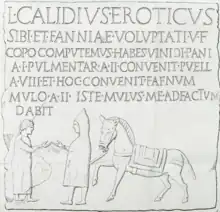 L·CALIDIVS·EROTICVS
SIBI·ET·FANNIAE·VOLVPTATI·V·F
COPO COMPVTEMVS·HABES·VINI·)·I·PANE
A·I·PVLMENTAR·A·II·CONVENIT·PVELL
A·VIII·ET·HOC·CONVENIT·FAENVM
MVLO·A·II·ISTE·MVLVS·ME·AD·FACTVM
DABIT